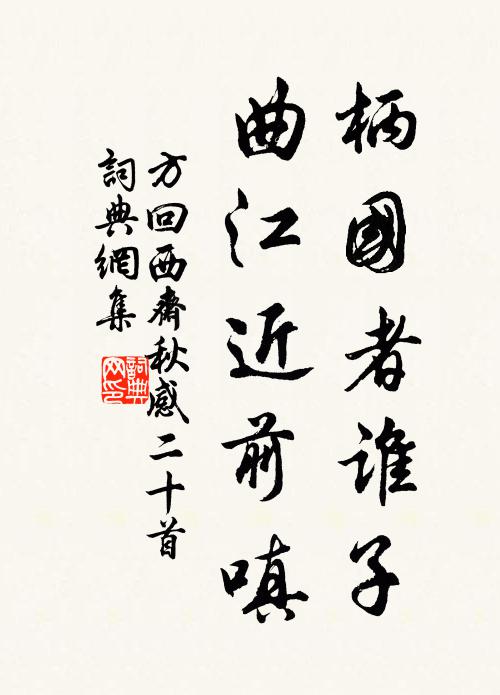 柄國者誰子
曲江近前嗔
方回西齋秋感二十首
詞典網集
詞典
网印